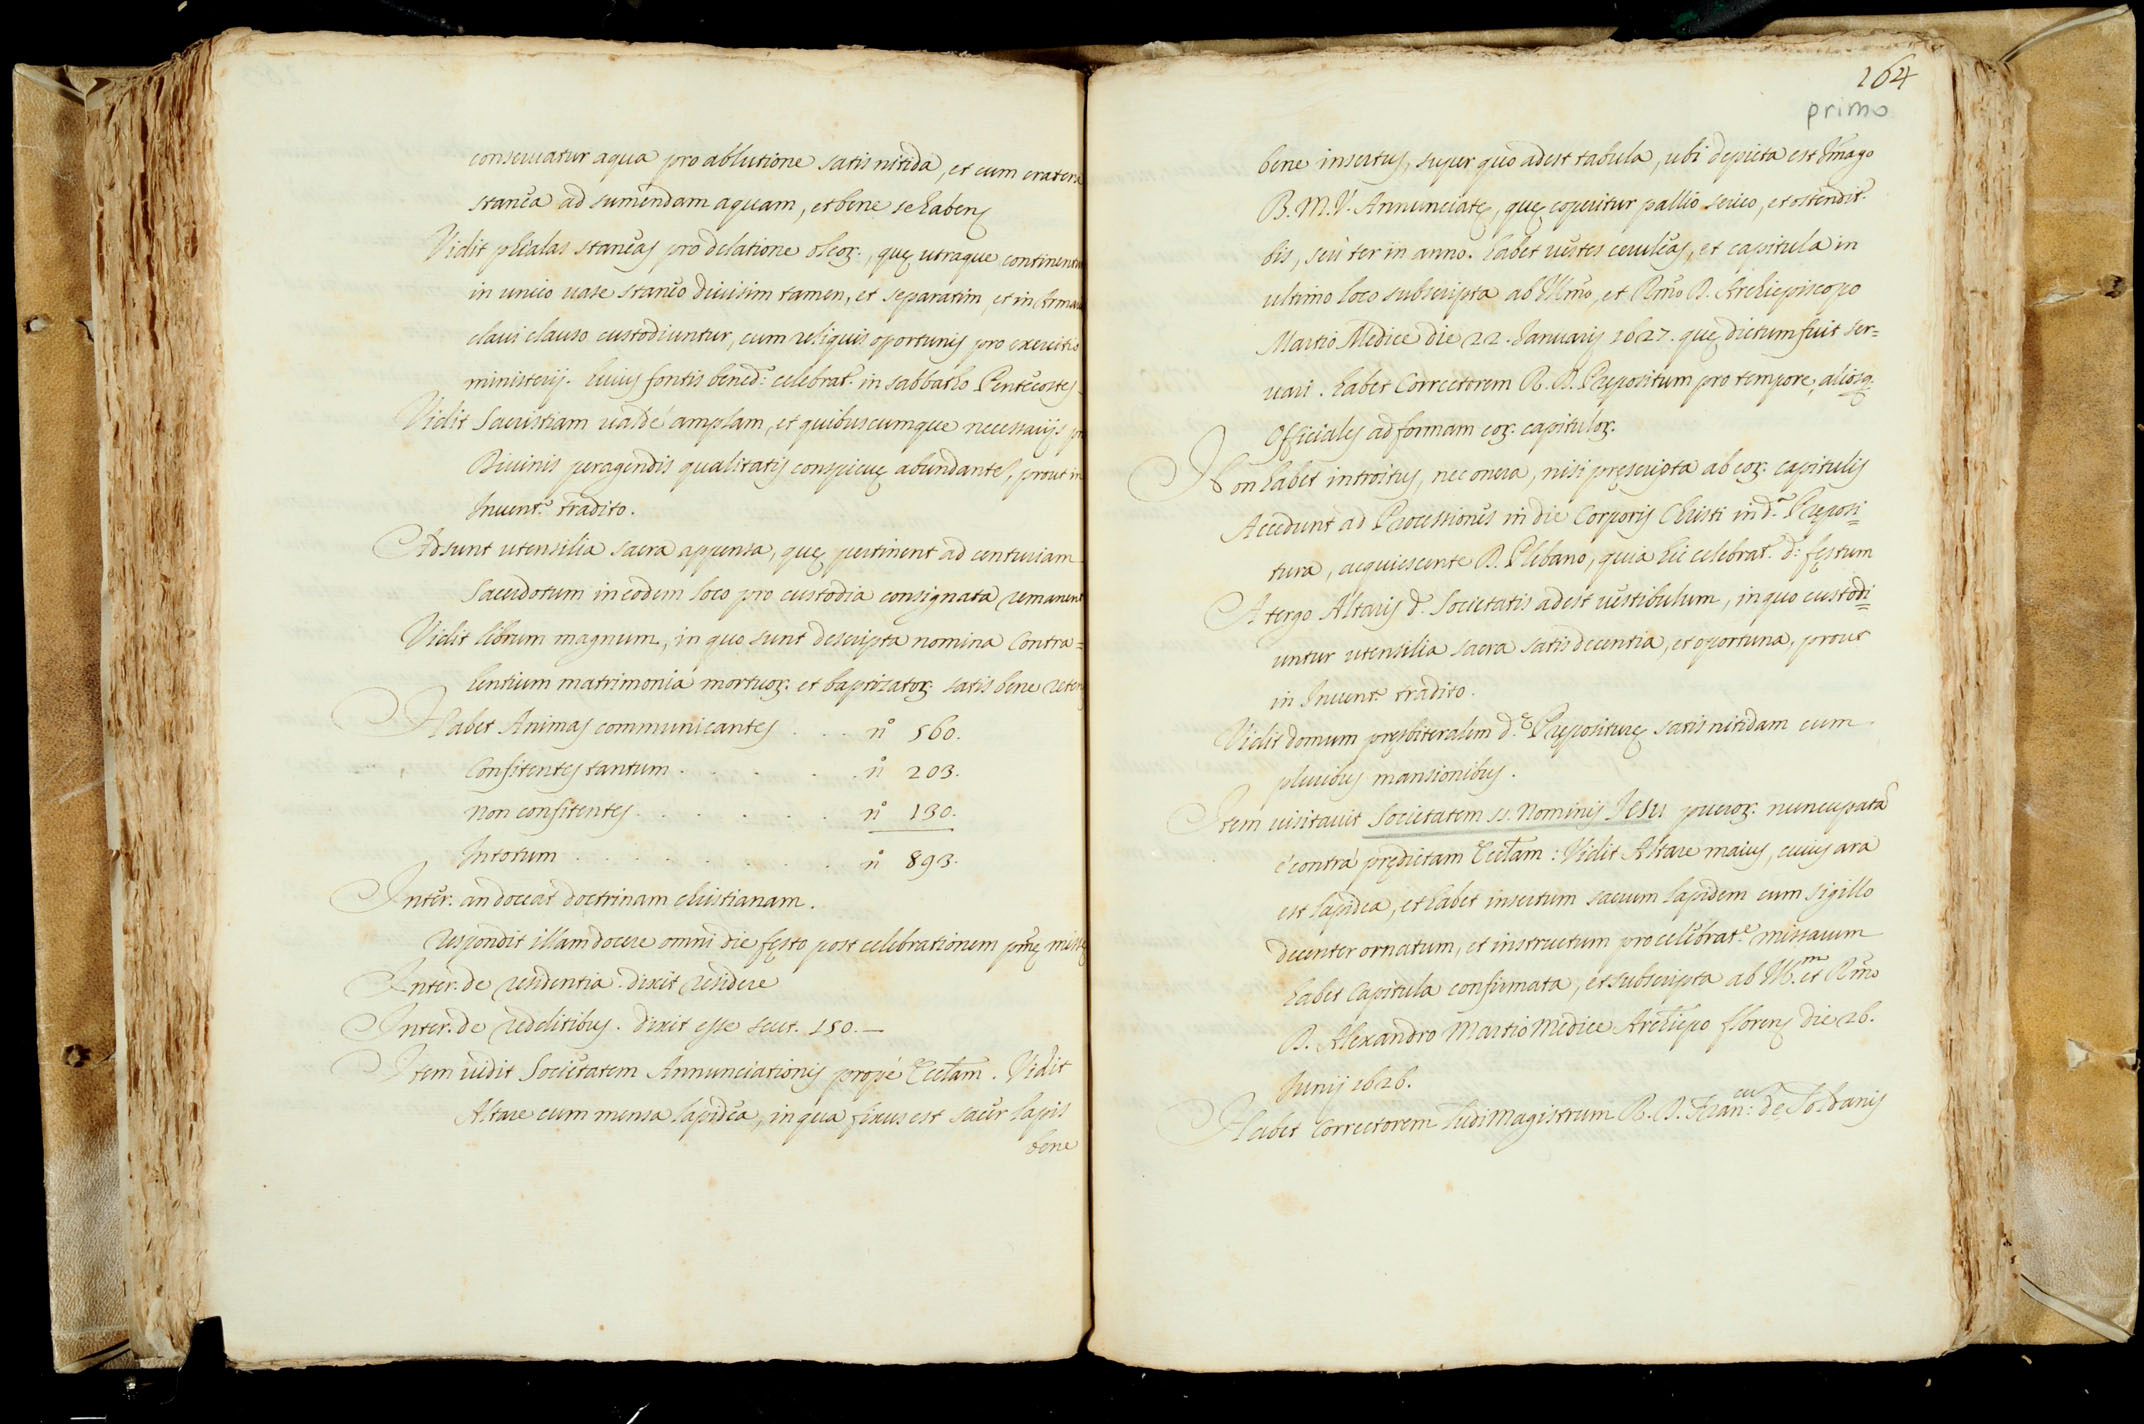 conseruatur aqua pro ablutione satis nitida, et cum cratera
stanea ad sumendam aquam, et bene se habens
Vidit phialas staneas pro delatione oleor., quę utraque continentur
in unico uase staneo diuisim tamen, et separatim, et in Armar
claui clauso custodiuntur, cum reliquis oportunis pro exercitio
ministerij. huius fontis bened: celebrat. in sabbatho Pentecostes
Vidit Sacristiam ualde amplam, et quibuscumque necessarijs pro
Diuinis peragendis qualitatis conspicuę abundante, prout in
Inuent.o tradito.
Adsunt utensilia sacra appensa, quę pertinent ad centuriam
Sacerdotum in eodem loco pro custodia consignata remanent
Vidit librum magnum, in quo sunt descripta nomina Contra=
hentium matrimonia mortuor. et baptizator. satis bene reten
Habet Animas communicantes . . . n° 560.
Confitentes tantum . . . . . . n° 203.
Non confitentes . . . . . . . n° 130.
Intotum . . . . . . . . . . n° 893.
Inter. an doceat doctrinam christianam.
respondit illam docere omni die fęsto post celebrationem pmę missę
Inter. de residentia. dixit residere
Inter. de redditibus. dixit esse scut. 150.—
Item uidit Societatem Annunciationis prope Ecclam. Vidit
Altare cum mensa lapidea, in qua fixus est sacer lapis
bene
164
primo
bene insertus, super quo adest tabula, ubi depicta est Imago
B. M. V. Annunciatę, quę coperitur pallio serico, et ostendit.
bis, seu ter in anno. habet uestes ceruleas, et capitula in
ultimo loco subscripta ab Illmo, et Rmo D. Archiepiscopo
Martio Medice die 22. Ianuarij 1627. quę dictum fuit ser=
uari. habet Correctorem R. D. Prępositum pro tempore, aliosq.
Officiales ad formam eor. capitulor.
Non habet introitus, nec onera, nisi pręscripta ab eor. capitulis
Accedunt ad Processiones in die Corporis Christi in d.a Pręposi=
tura, acquiescente D. Plebano, quia hic celebrat. d: fęstum
A tergo Altaris d. Societatis adest uestibulum, in quo custodi=
untur utensilia sacra satis decentia, et oportuna, prout
in Inuent.o tradito.
Vidit domum pręsbiteralem d.ę Pręposituręę satis nitidam cum
pluribus mansionibus.
Item uisitauit Societatem SS. Nominis Iesu pueror. nuncupatā
è contra prędictam Ecclam: Vidit Altare maius, cuius ara
est lapidea, et habet insertum sacrum lapidem cum sigillo
decenter ornatum, et instructum pro celebrat.e missarum
habet Capitula confirmata, et subscripta ab Ill.m et Rmo
D. Alexandro Martio Medice Archiepo floren̄ die 26.
Iunij 1626.
Habet Correctorem ludi Magistrum R. D. Fran:cum de Soldanis